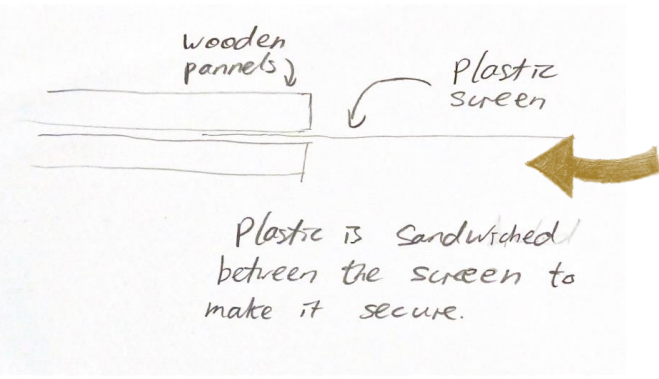 wooden
pannels
Plastic
screen
Plastic is Sandwiched
between the screen to
make it secure.